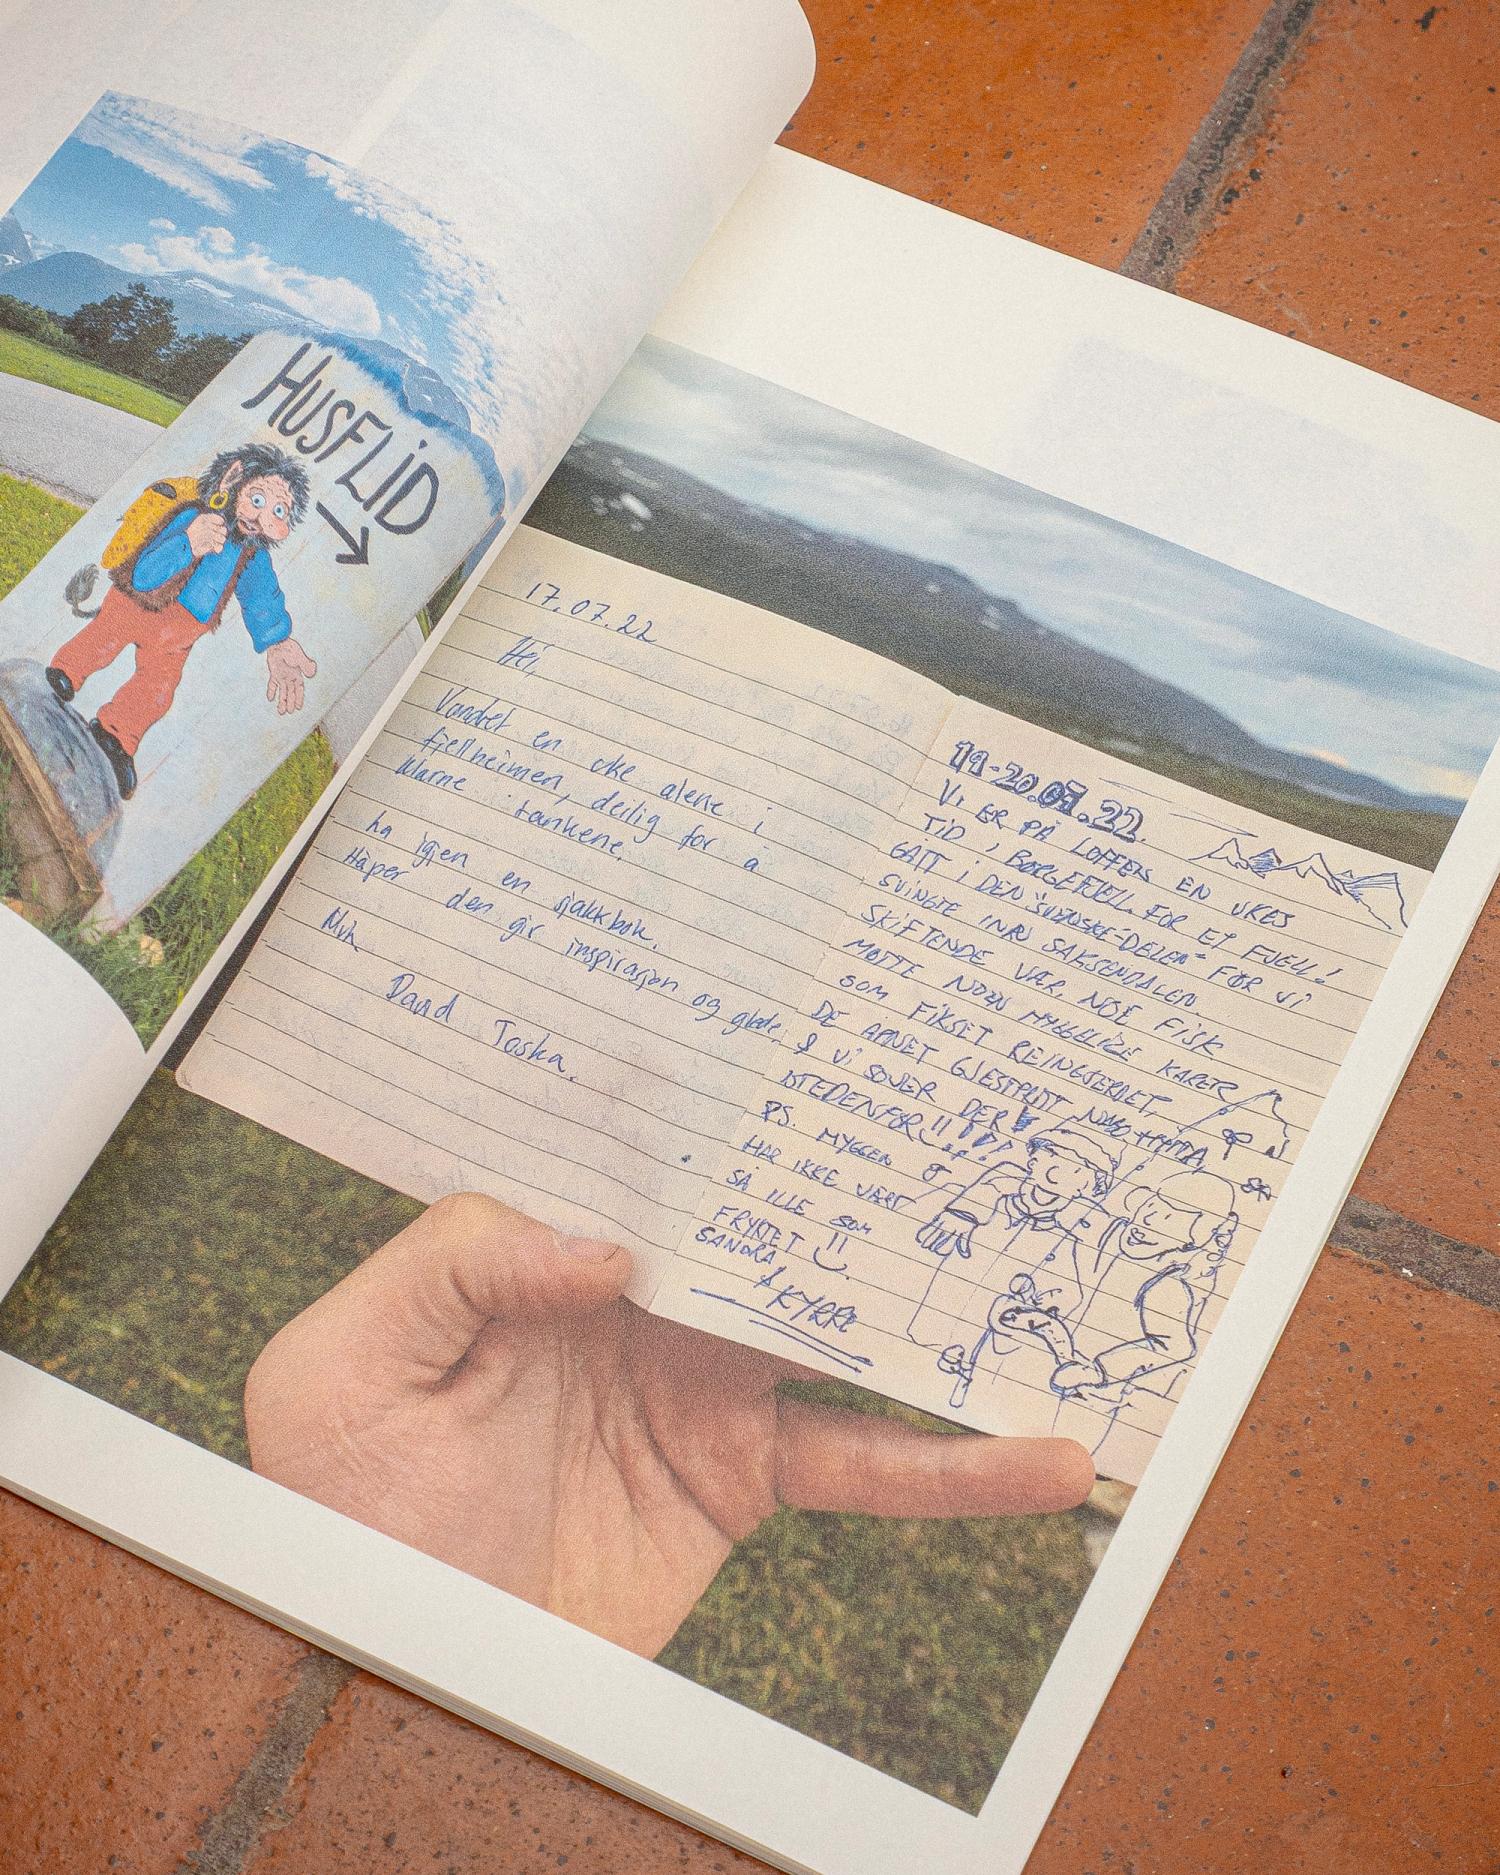 HUSFLID
17.07.22
Hei,
Vandret en uke alene i
fjellheimen, deilig for å
klarne tankene.
ha igjen en sjakkbok.
Håper den gir inspirasjon og glede.
Mvh
David Toska.
19-20.07.22
Vi ER PÅ LOFFEN EN UKES
TID i BØRGEFJELL. FOR ET FJELL!
GÅTT i DEN "SVENSKE-DELEN" FØR Vi
SVINGTE INN SAKSENDALEN.
SKIFTENDE VÆR, NOE FISK
MØTTE NOEN HYGGELIGE KARER
SOM FIKSET REINGJERDET,
DE ÅPNET GJESTEHYTT
& Vi SOVER DER
ISTEDENFOR!!
PS. MYGGEN
HAR IKKE VÆRT
SÅ ILLE SOM
FRYKTET !!
SANDRA
& KYRRE